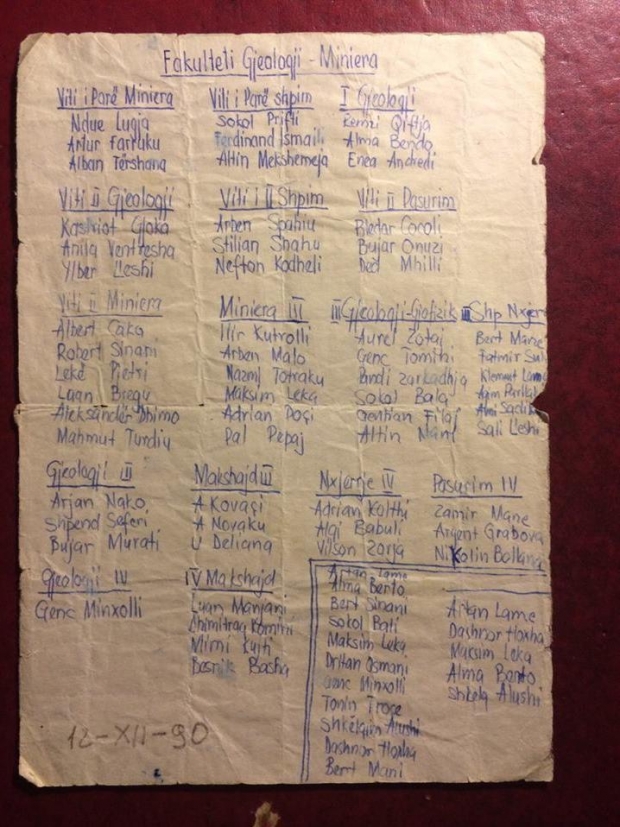 Fakulteti Gjeologji - Miniera
Viti i Parë Miniera
Ndue Lugja
Artur Farruku
Alban Tershana
Viti i Parë shpim
Sokol Prifti
Ferdinand Ismaili
Altin Mekshemeja
I Gjeologji
Remzi Qiftja
Alma Bendo
Enea Andredi
Viti II Gjeologji
Kastriot Gjoka
Anila Ventresha
Ylber Lleshi
Viti i II Shpim
Arben Spahiu
Stilian Shahu
Nefton Kodheli
Viti II Pasurim
Bledar Cocoli
Bujar Onuzi
Ded Mhilli
Viti II Miniera
Albert Caka
Robert Sinani
Lekë Pjetri
Luan Bregu
Aleksandër Dhimo
Mahmut Turdiu
Miniera III
Ilir Kutrolli
Arben Malo
Nazmi Totraku
Maksim Leka
Adrian Doçi
Pal Pepaj
III Gjeologji-Gjiofizik
Aurel Zotaj
Genc Tomithi
Pandi Zarkadhja
Sokol Bala
Gentian Filaj
Altin Nani
III Shp Nxjer
Bert Mane
Fatmir
Klement
Agim
Sadik
Sali Lleshi
Gjeologji III
Arjan Nako
Shpend Seferi
Bujar Murati
Makshajd III
A Kovaçi
A Novaku
U Deliana
Nxjerrje IV
Adrian Kolthi
Algi Babuli
Vilson Zorja
Pasurim IV
Zamir Mane
Argent Grabova
Nikolin Ballana
Gjeologji IV
Genc Minxolli
IV Makshajd
Luan Manjani
Dhimitraq Komini
Mimi Kujti
Besnik Basha
Artan Lame
Alma Bento
Bert Sinani
Sokol Bati
Maksim Leka
Dritan Osmani
Genc Minxolli
Tonin Troçe
Shkelqim Alushi
Dashnor Hoxha
Bert Mani
Artan Lame
Dashnor Hoxha
Maksim Leka
Alma Bento
Shkelq Alushi
12-XII-90